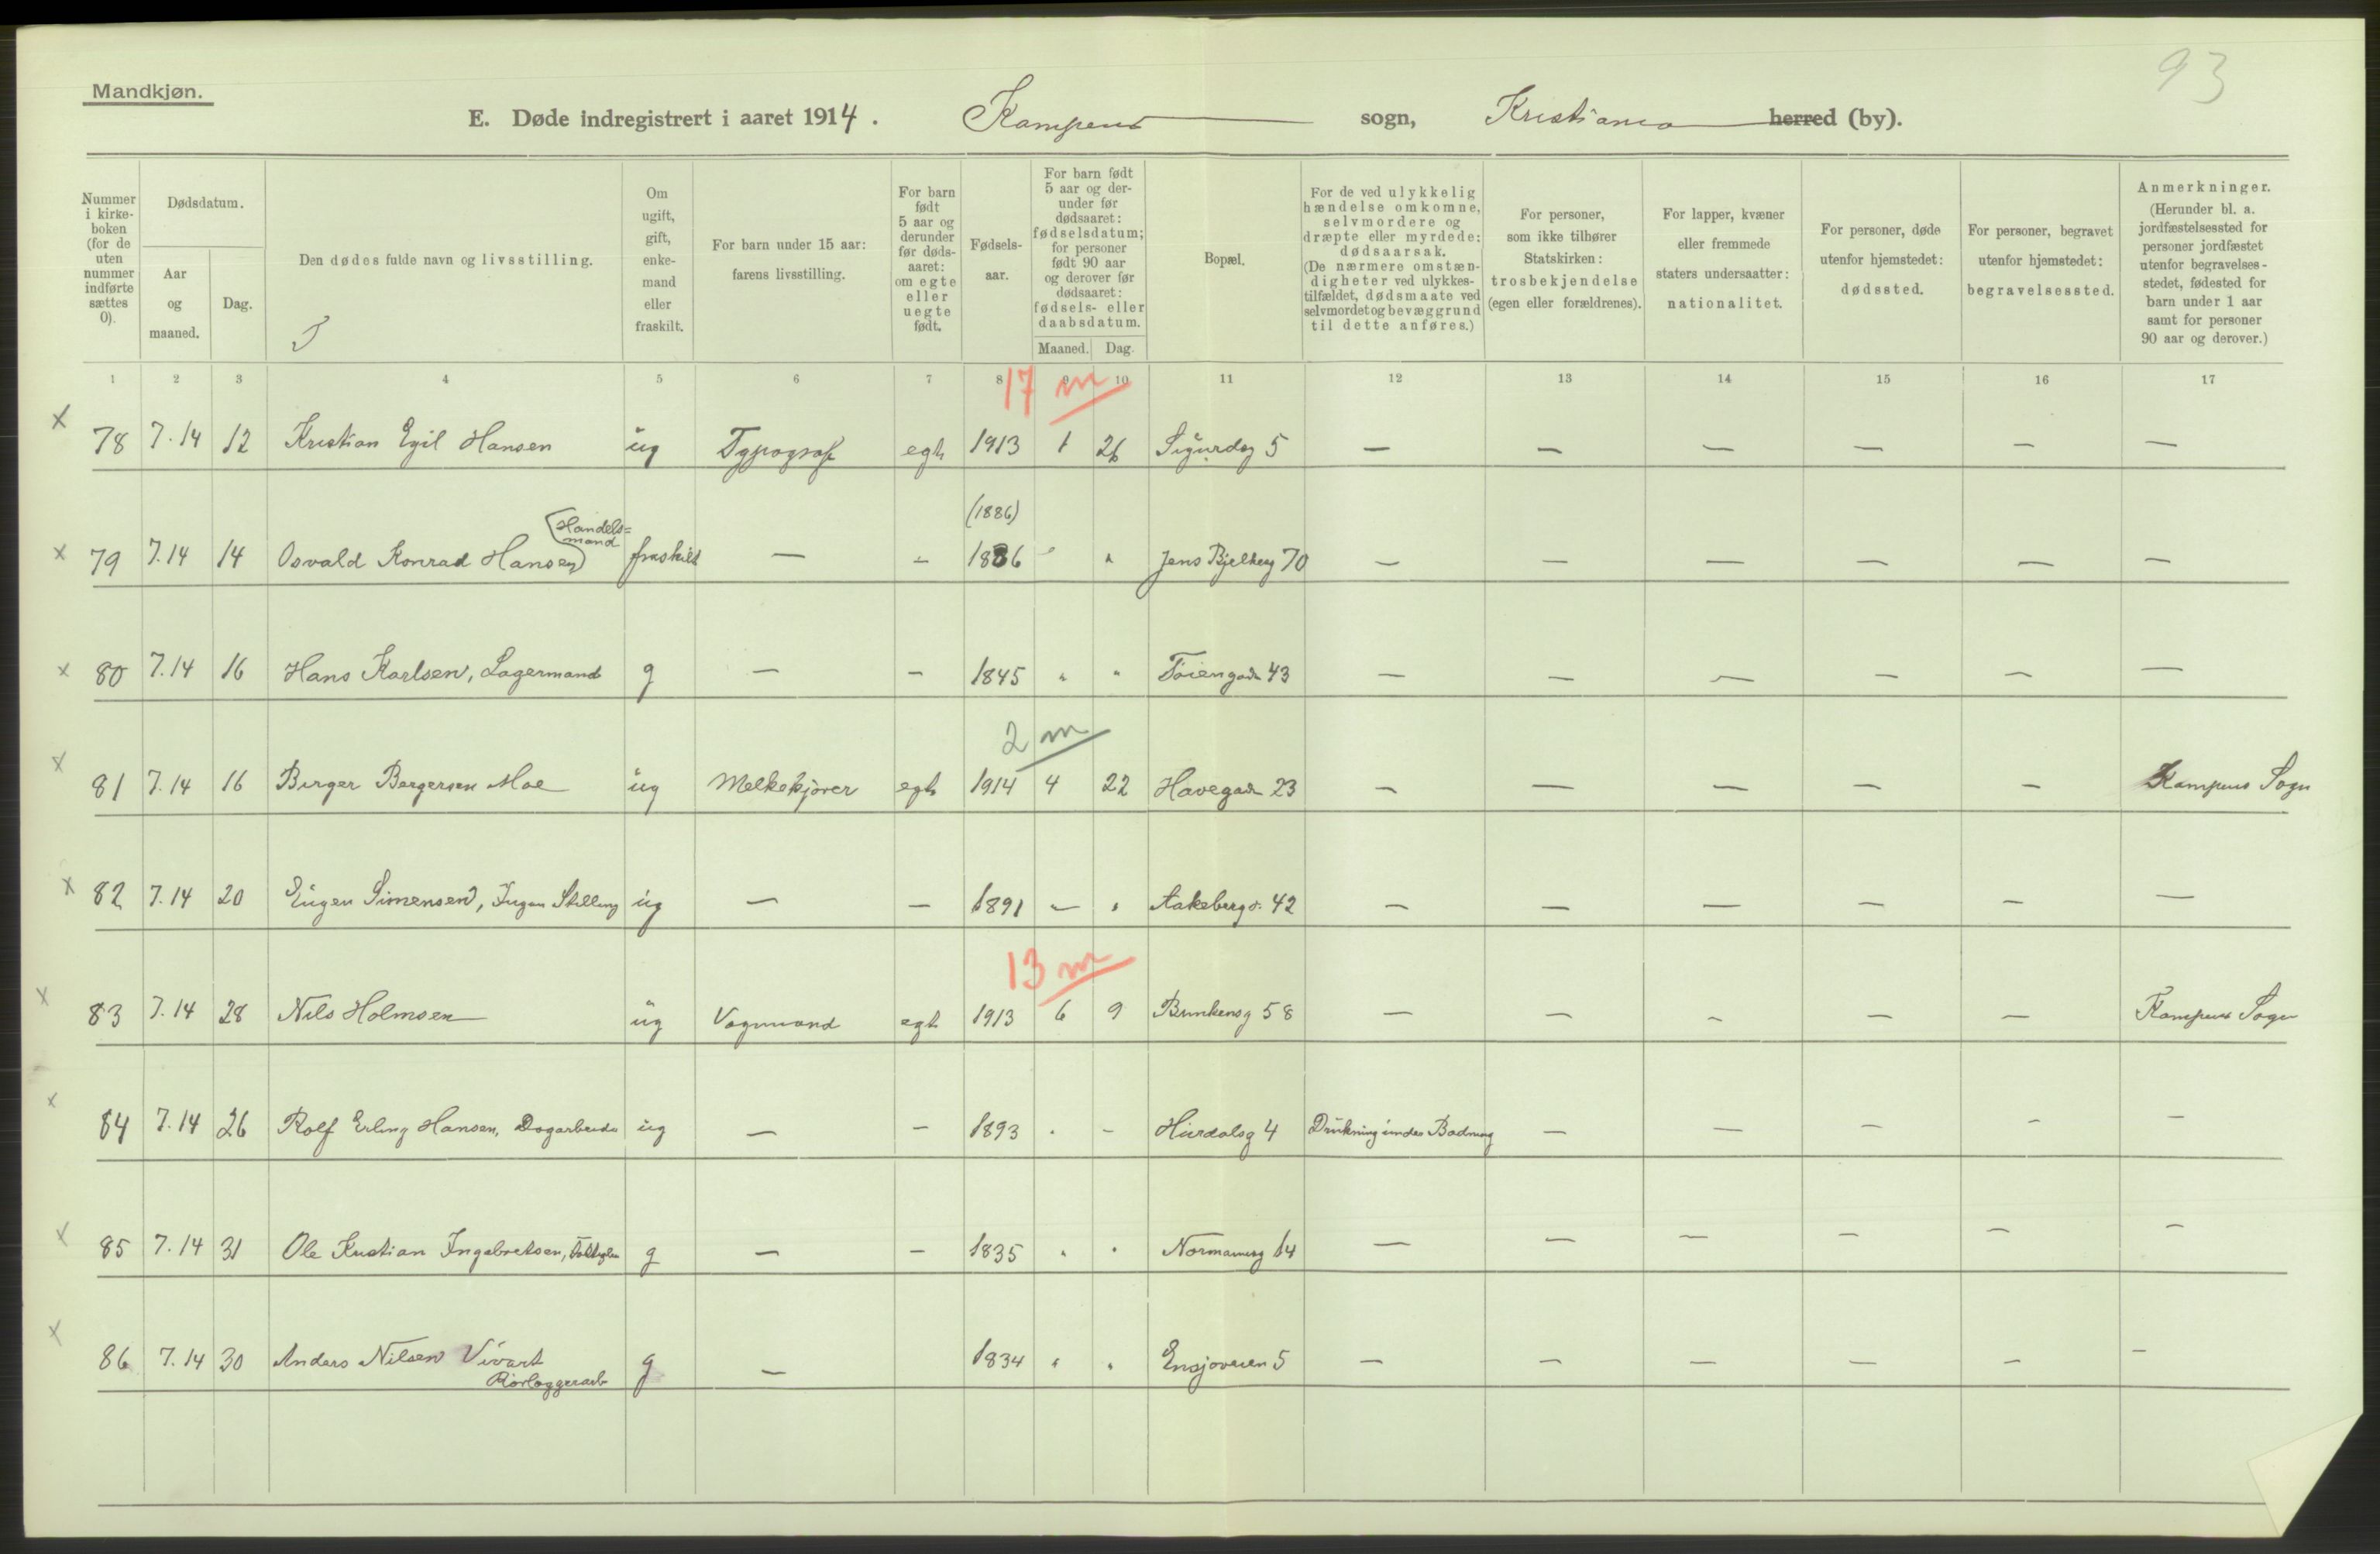 93
Mandkjøn.
E. Døde indregistrert i aaret 1914. Kampens sogn, Kristiania herred (by).
Nummer i kirke-boken (for de uten nummer indførte sættes 0).
Dødsdatum.
Aar og maaned.
Dag.
Den dødes fulde navn og livsstilling.
Om ugift, gift, enke-mand eller fraskilt.
For barn under 15 aar: farens livsstilling.
For barn født 5 aar og derunder før døds-aaret: om egte eller uegte født.
Fødsels-aar.
For barn født 5 aar og der-under før dødsaaret: fødselsdatum; for personer født 90 aar og derover før dødsaaret: fødsels- eller daabsdatum.
Maaned. Dag.
Bopæl.
For de ved ulykkelig hændelse omkomne, selvmordere og dræpte eller myrdede: dødsaarsak. (De nærmere omstæn-digheter ved ulykkes-tilfældet, dødsmaate ved selvmordet og bevæggrund til dette anføres.)
For personer, som ikke tilhører Statskirken: trosbekjendelse (egen eller forældrenes).
For lapper, kvæner eller fremmede staters undersaatter: nationalitet.
For personer, døde utenfor hjemstedet: dødssted.
For personer, begravet utenfor hjemstedet: begravelsessted.
Anmerkninger. (Herunder bl. a. jordfæstelsessted for personer jordfæstet utenfor begravelses-stedet, fødested for barn under 1 aar samt for personer 90 aar og derover.)
1 2 3 4 5 6 7 8 9 10 11 12 13 14 15 16 17
17 m
x 78 7.14 12 Kristian Egil Hansen ug Typograf egte 1913 1 26 Sigurdsg 5 — — — — — —
(1886)
Handels=
mand
x 79 7.14 14 Osvald Konrad Hansen fraskilt — — 1886 " " Jens Bjelkesg 70 — — — — — —
x 80 7.14 16 Hans Karlsen, Lagermand g — — 1845 " " Tøiengade 43 — — — — — —
2 m
x 81 7.14 16 Birger Bergersen Moe ug Melkekjører egte 1914 4 22 Havegade 23 — — — — — Kampens Sogn
x 82 7.14 20 Eugen Simensen, Ingen Stilling ug — — 1891 — " Aakebergv. 42 — — — — — —
13 m
x 83 7.14 28 Nils Holmsen ug Vognmand egte 1913 6 9 58 — — — — — Kampens Sogn
x 84 7.14 26 Rolf Erling Hansen, Dagarbeider ug — — 1893 " — Hurdalsg 4 Drukning under Badning — — — — —
x 85 7.14 31 Ole Kristian Ingebretsen, g — — 1835 " " Normannsg 14 — — — — — —
x 86 7.14 30 Anders Nilsen g — 1834 " " Ensjøveien 5 — — — — — —
Rørlæggerarb